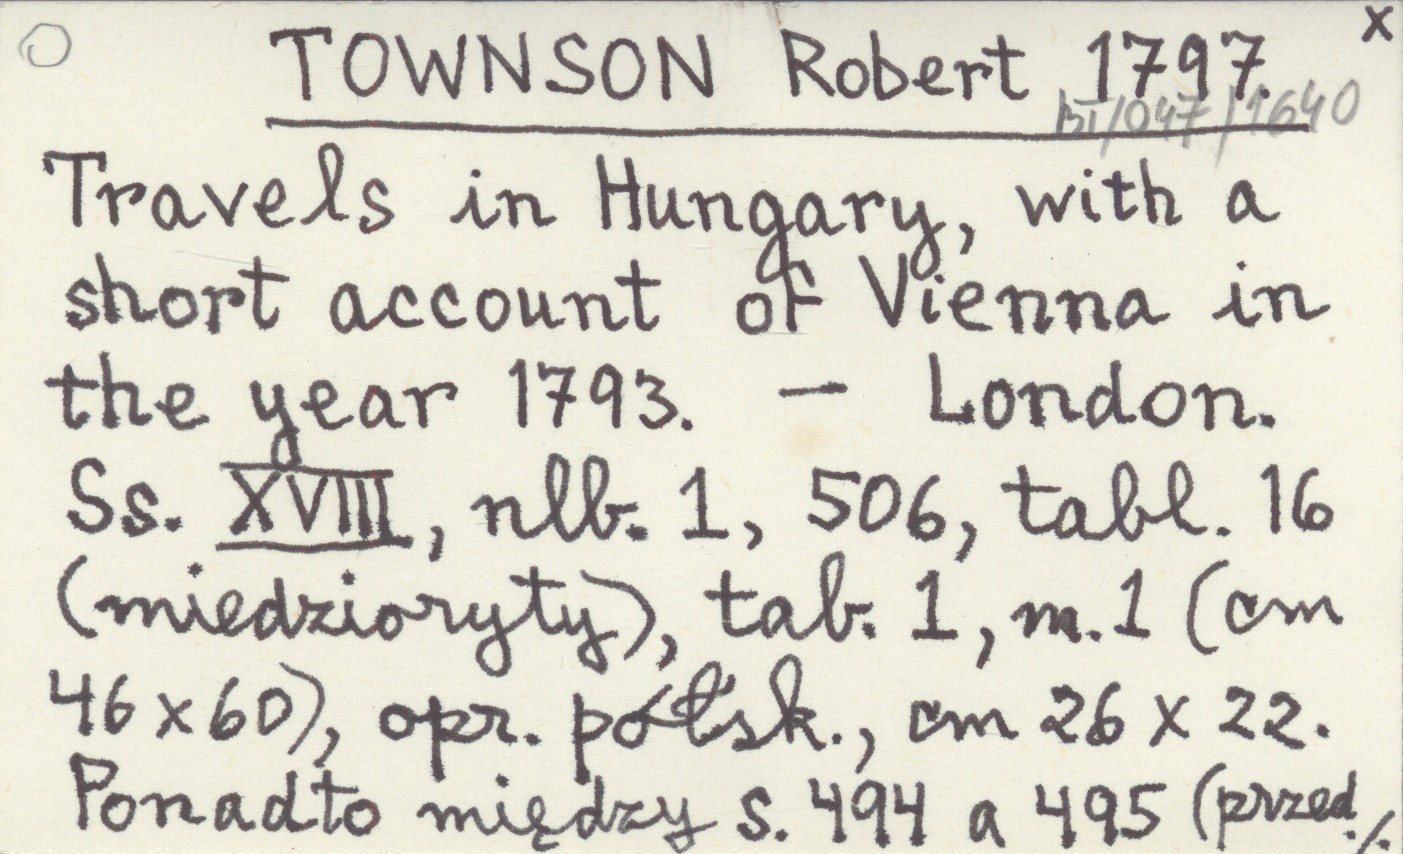 x
TOWNSON Robert 1797.
BT/047/1640
Travels in Hungary, with a
short account of Vienna in
the year 1793. — London.
Ss. XVIII, nlb. 1, 506, tabl. 16
(miedzioryty), tab. 1, m. 1 (cm
46 x 60), opr. półsk., cm 26 x 22.
Ponadto między s. 494 a 495 (przed ./.